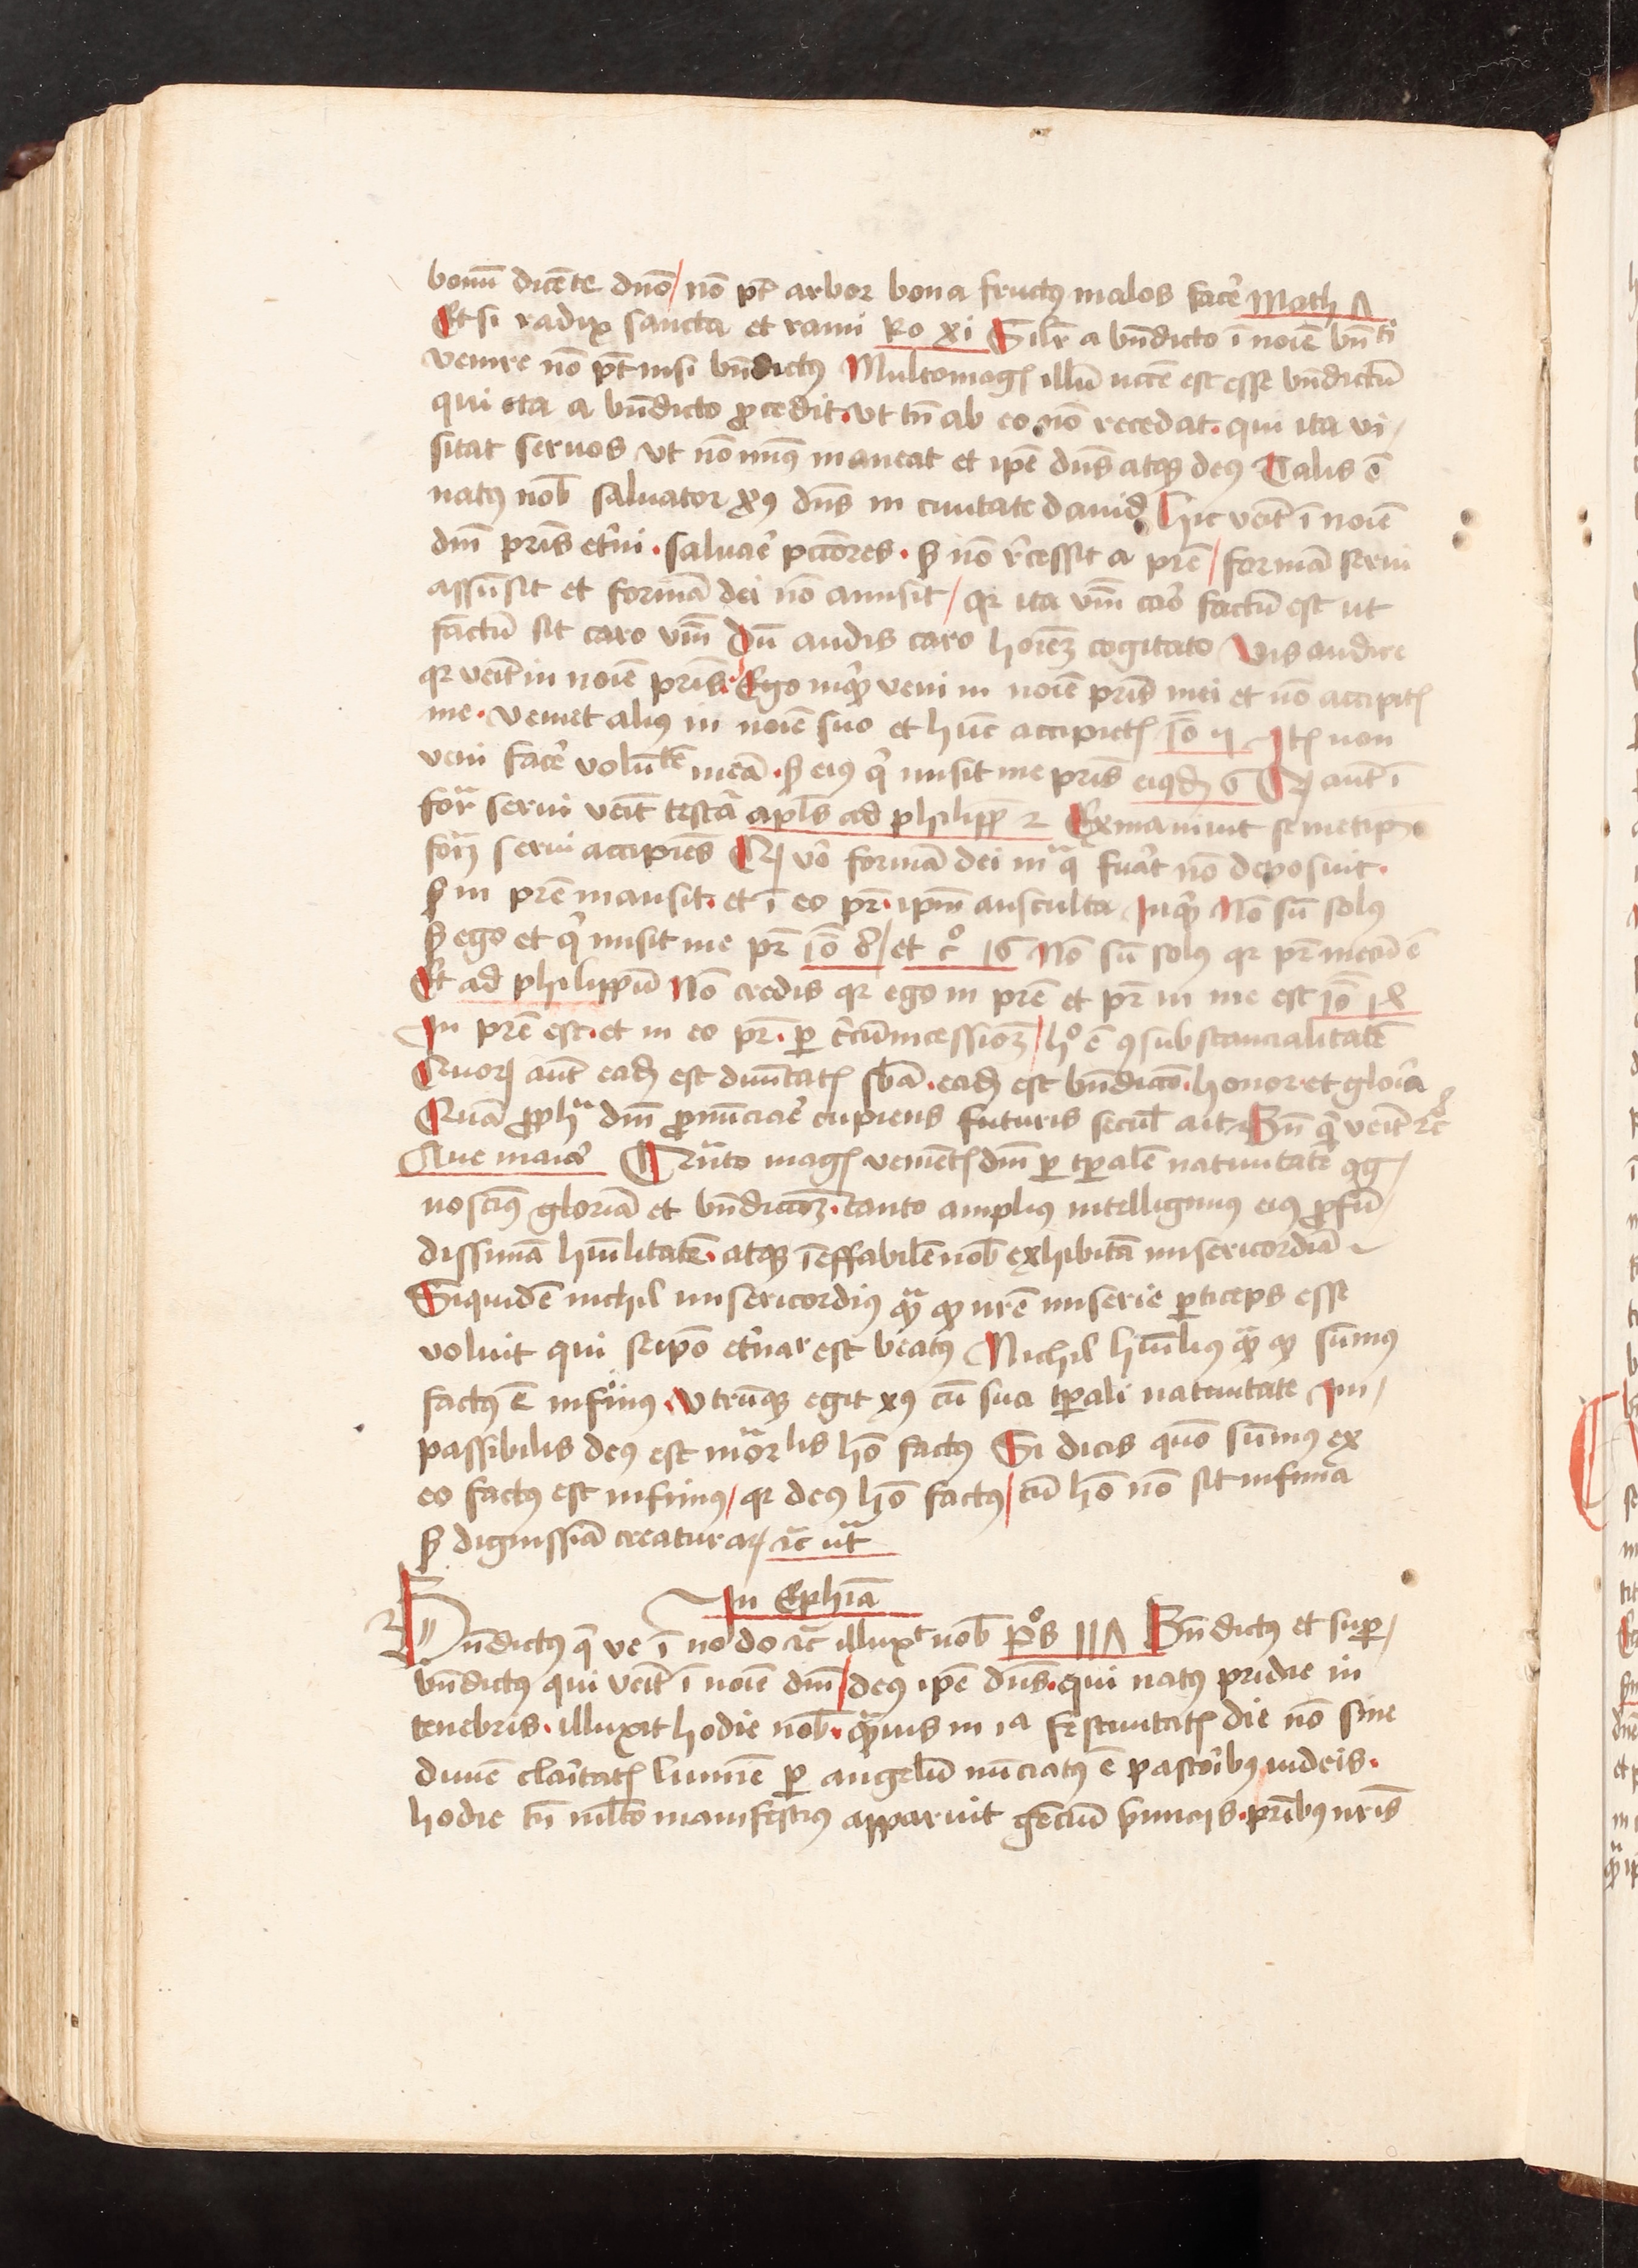 bonū dicēte dn̄o / nō pt̄ arbor bona fructꝰ malos facē Math Λ
Et si radix sancta et rami Ro xi Silr̄ a bn̄dicto ī noīe bn̄ti
venire nō pt̄ nisi bn̄dictꝰ Multomagꝭ illū nccē est esse bn̄dictū
qui ita a bn̄dicto ꝓcedit . vt tn̄ ab eo nō recedat . qui ita vi /
sitat seruos vt nō minꝰ maneat et ip̄e dn̄s atqꝫ deꝰ Talis ē
natꝰ nob̄ saluator xp̄ꝰ dn̄s in ciuitate dauid Hic veīt ī noīe
dn̄i pr̄is et̄ni . saluaē pcc̄ores . sꝫ nō r̄cessit a pr̄e / formā serui
assūsit et formā dei nō amisit / qꝛ ita vm̄ caro factū est ut
factū sit caro vm̄ Dū audis caro hoīeꝫ cogitato Vis audire
qꝛ veīt in noīe pr̄is . Ego inqͥt veni in noīe pr̄is mei et nō accipitꝭ
me . veniet aliꝰ in noīe suo et hūc accipietꝭ Io 5 Itꝭ non
veni facē volūtē meā . sꝫ eiꝰ qͥ misit me pr̄is eiusdē 6 Qꝫ aut̄ ī
for̄ serui veīt testat̄ apl̄s ad philipp̄ 2 Exinaniuit semetipꝫ
for̄ serui accipiēs Qꝫ vo̊ formā dei in qua fuāt nō deposuit .
sꝫ in pr̄e mansit . et ī eo pr̄ . ip̄m ausculta Inqͥt Nō sū solꝰ
sꝫ ego et qͥ misit me pr̄ Io 8 / et c̊ 16 Nō sū solꝰ qꝛ pr̄ mecū ē
Et ad philippū Nō credis qꝛ ego in pr̄e et pr̄ in me est Io 14
In pr̄e est . et in eo pr̄ . ꝑ c̄cūincessioꝫ / ho̊ ē ꝯsubstancialitatē
Quoꝝ aut̄ eadē est diuītatꝭ sbā . eadē est bn̄dictō . honor . et glōia
Quā ꝓph̄a dn̄i ꝓnūciaē cupiens futuris secul̄ ait Bn̄ qͥ veīt ⁊c̄
Aue maiā Quāto magꝭ venientꝭ dn̄i ꝑ tꝑalē natiuitatē ꝯg /
noscimꝰ gloriā et bn̄dictōꝫ . tanto ampliꝰ intelligimus eiꝰ ꝓfū /
dissimā hūilitatē . atqꝫ īeffabilē nob̄ exhibitā misericordiā
Siquidē nichil misericordiꝰ qͣ qꝙ nr̄e miserie ꝑticeps esse
voluit qui seip̄o et̄nar est beatꝰ Nichil hūiliꝰ qͣ qꝙ sūmus
factꝰ ē infimꝰ . vtrūqꝫ egit xp̄ꝰ cū sua tꝑali natiuitate Im /
passibilis deꝰ est mortalis hō factꝰ Si dicis quō sūmus ex
eo factꝰ est infimꝰ / qꝛ deꝰ hō factꝰ / cū hō nō sit infima
sꝫ dignissīa creaturaꝝ ⁊c̄ ut̄
In Ephīa
Bn̄dictꝰ qͥ ve ī no do ⁊c̄ illuxͭ nob̄ p̊s 117 Bn̄dictꝰ et suꝑ /
bn̄dictꝰ qui veīt ī noīe dn̄i / deꝰ ip̄e dn̄s . qui natꝰ pridie in
tenebris . illuxit hodie nob̄ . qͣuis in ia festiuitatꝭ die nō sine
diuīe claritatꝭ lumīe ꝑ angelū nūciatꝰ ē pastoribꝰ iudeis .
hodie tn̄ ml̄to manifestiꝰ apparuit gēciū pͥmicijs . pr̄ibꝰ nr̄is